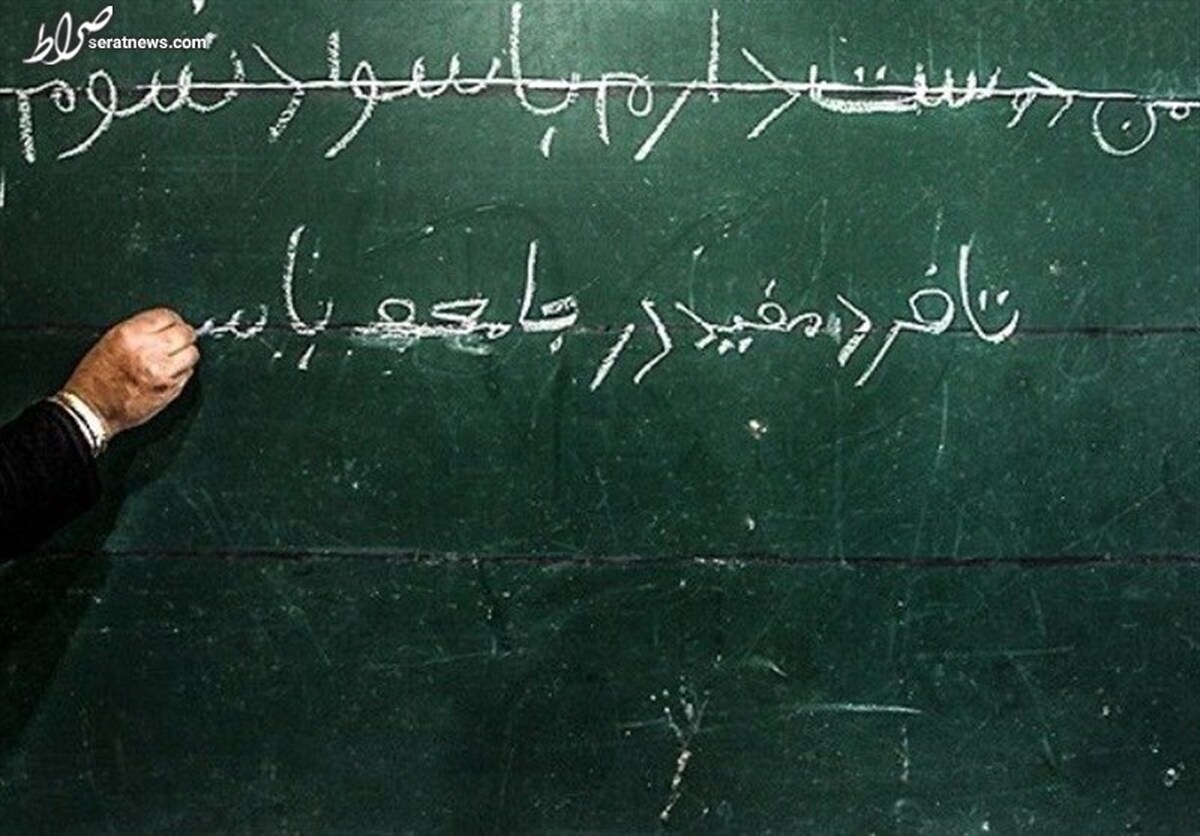 صراط
seratnews.com
من دوست دارم باسواد شوم
تا فرد مفید در جامعه باس